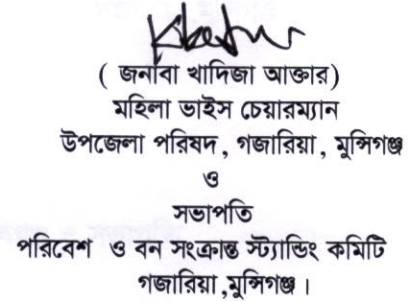 ( জনাবা খাদিজা আক্তার)
মহিলা ভাইস চেয়ারম্যান
উপজেলা পরিষদ , গজারিয়া , মুন্সিগঞ্জ
ও
সভাপতি
পরিবেশ ও বন সংক্রান্ত স্ট্যান্ডিং কমিটি
গজারিয়া ,মুন্সিগঞ্জ ।